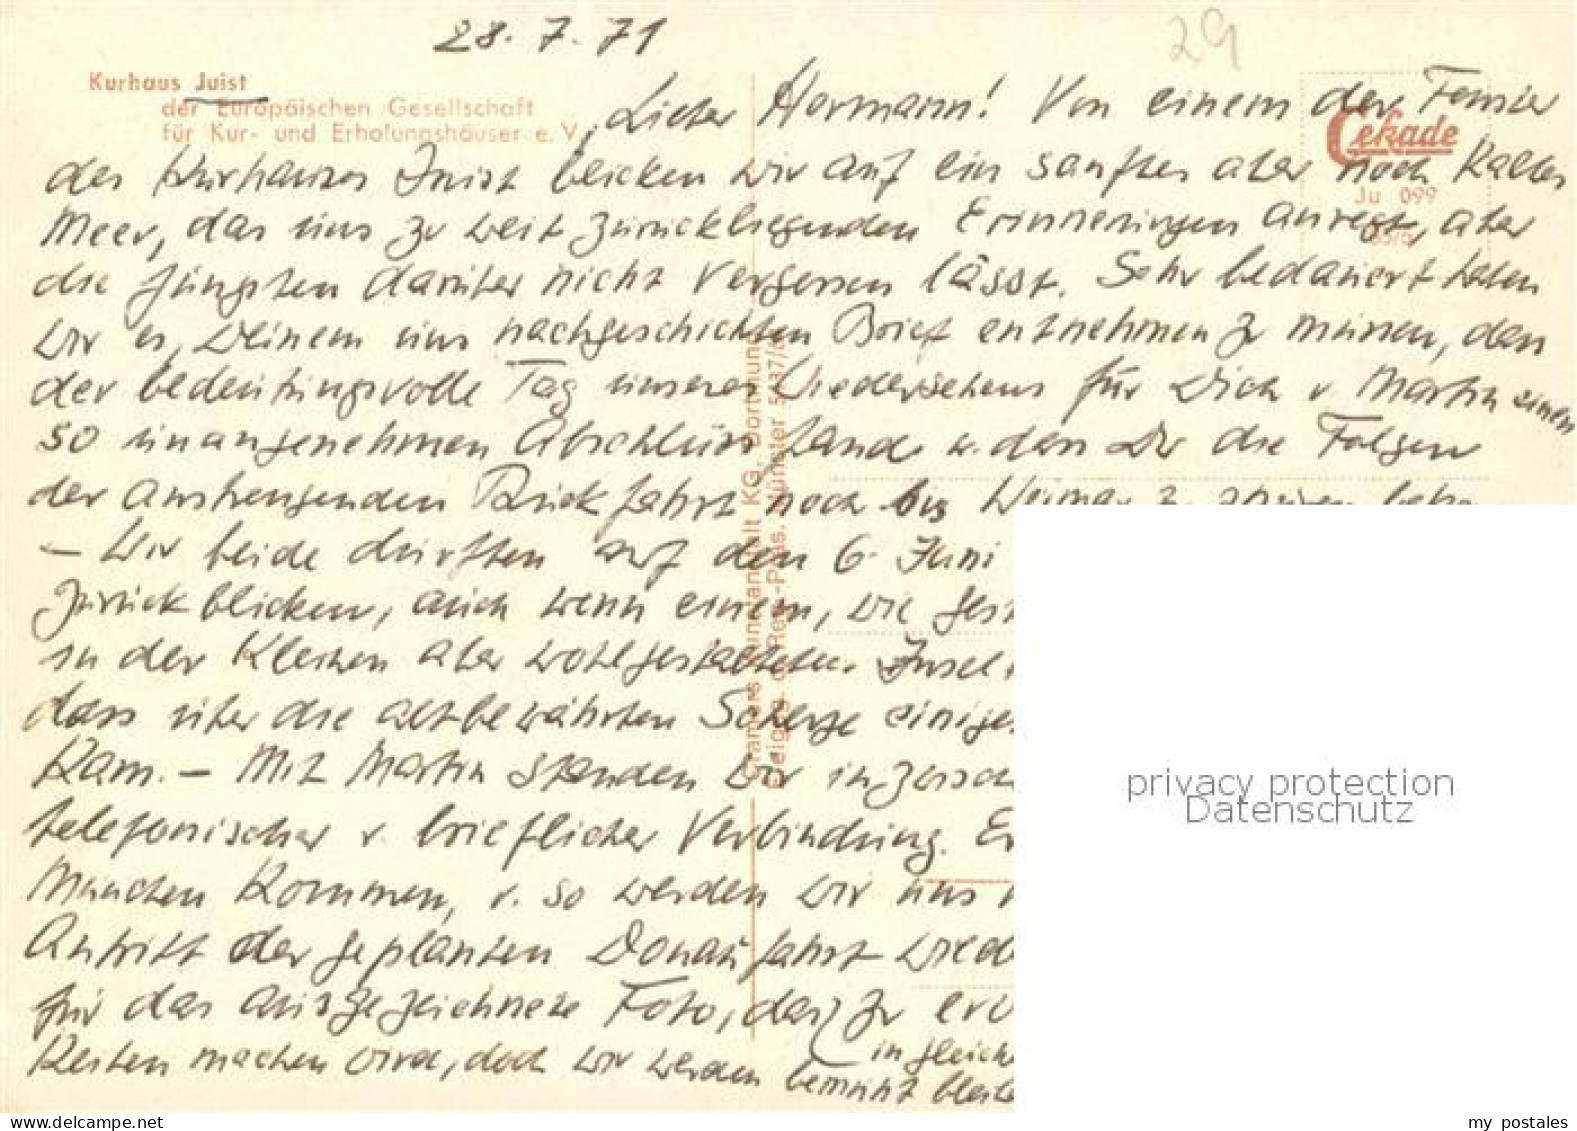 28. 7. 71
29
Kurhaus Juist
der Europäischen Gesellschaft
für Kur- und Erholungshäuser e. V.
Cekade
Ju 099
Lieber Hermann! Von einem der Fenster
des Kurhauses Juist blicken wir auf ein sanftes aber noch kaltes
Meer, das uns zu weit zurückliegenden Erinnerungen anregt, aber
die jüngsten darüber nicht vergessen lässt. Sehr bedauert haben
wir es, Deinem uns nachgeschickten Brief entnehmen z. müssen, dass
der bedeutungsvolle Tag unseres Wiedersehens für Dich u. Martin einen
so unangenehmen Abschluss fand u. dass Du die Folgen
der anstrengenden Rückfahrt noch bis Weimar z.
– Wir beide dürften auf den 6. Juni
zurückblicken, auch wenn einem, wie
in der kleinen aber wohlgestalteten Insel
dass über die altbewährten Scherze
kam. – Mit Martin standen wir
telefonischer u. brieflicher Verbindung.
München kommen, u. so werden wir uns
Antritt der geplanten Donaufahrt
für das ausgezeichnete Foto, das zu
Kosten machen wird, doch wir werden bemüht
in
Cramers Kunstanstalt KG. Dortmund